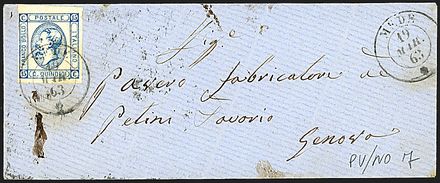 FRANCO BOLLO
POSTALE
ITALIANO
C. QUINDICI
15 C
C 15
MAR
63
MEDE
19
MAR
63
Sig.e
Passero fabricatore di
Pelini Lavorio
Genova
PV/NO 7